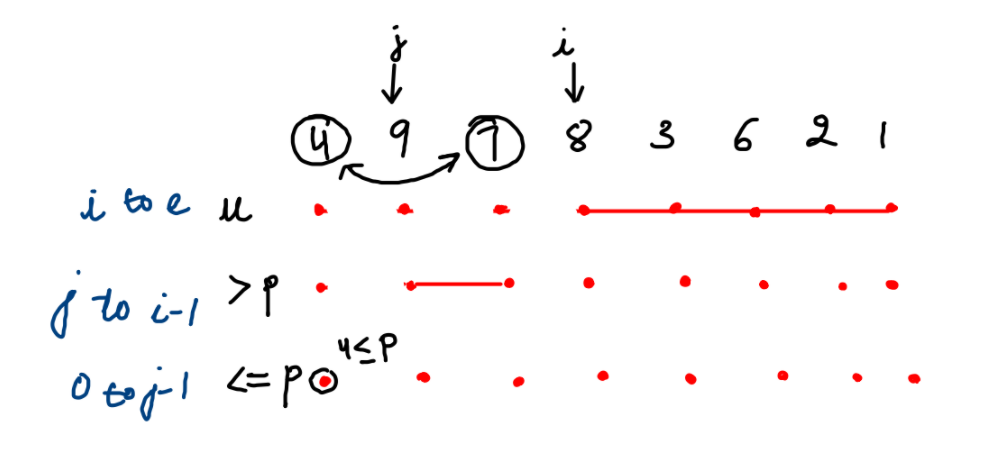 j i
4 9 7 8 3 6 2 1
i to e u
j to i-1 >p
4≤P
0 to j-1 <=p